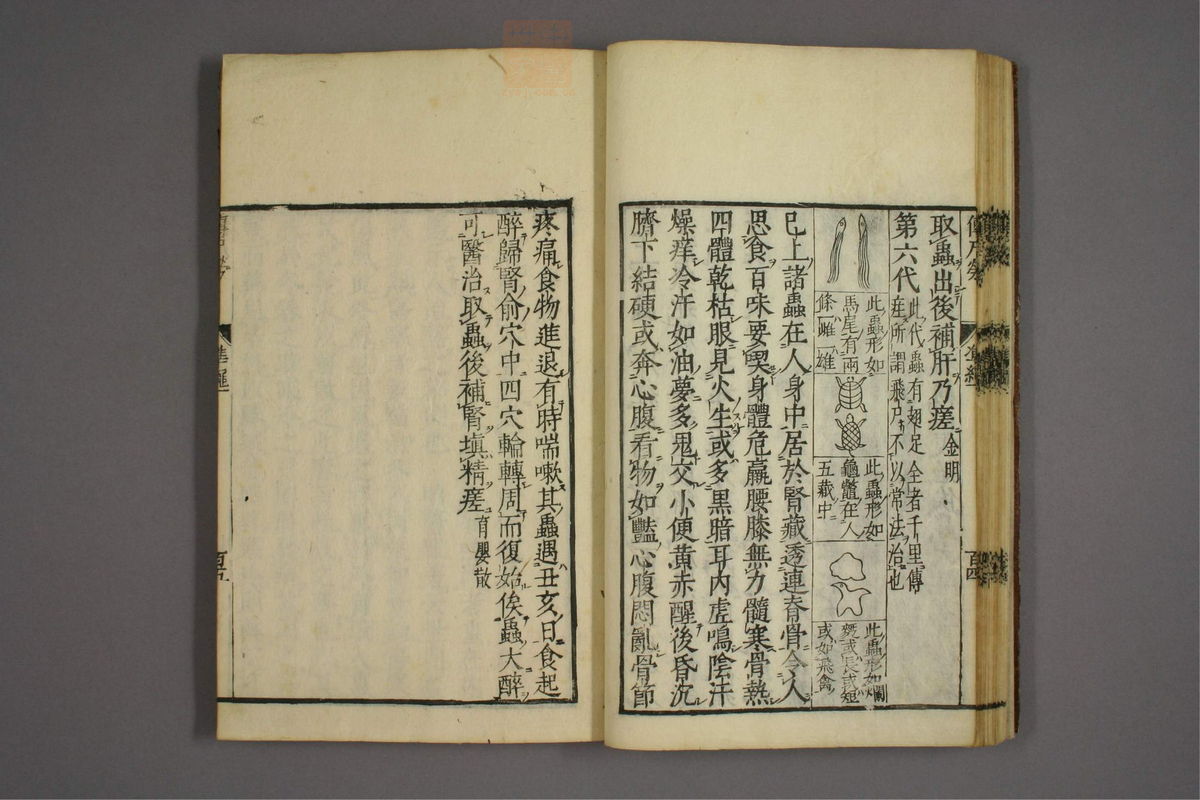 取蟲出後補肝乃瘥金明
第六代此代蟲有翅足全者千里傳
疰所謂飛尸不以常法治也
此蟲形如
馬尾有兩
條一雌一雄
此蟲形如
龜鱉在人
五藏中
此蟲形如爛
麪或長或短
或如飛禽
已上諸蟲在人身中居於腎藏透連脊骨令人
思食百味要喫身體危羸腰膝無力髓寒骨熱
四體乾枯眼見火生或多黑暗耳內虛鳴陰汗
燥痒冷汗如油夢多鬼交小便黄赤醒後昏沉
臍下結硬或奔心腹看物如豔心腹悶亂骨節
疼痛食物進退有時喘嗽其蟲遇丑亥日食起
醉歸腎俞穴中四穴輪轉周而復始俟蟲大醉
可醫治取蟲後補腎塡精瘥育嬰散